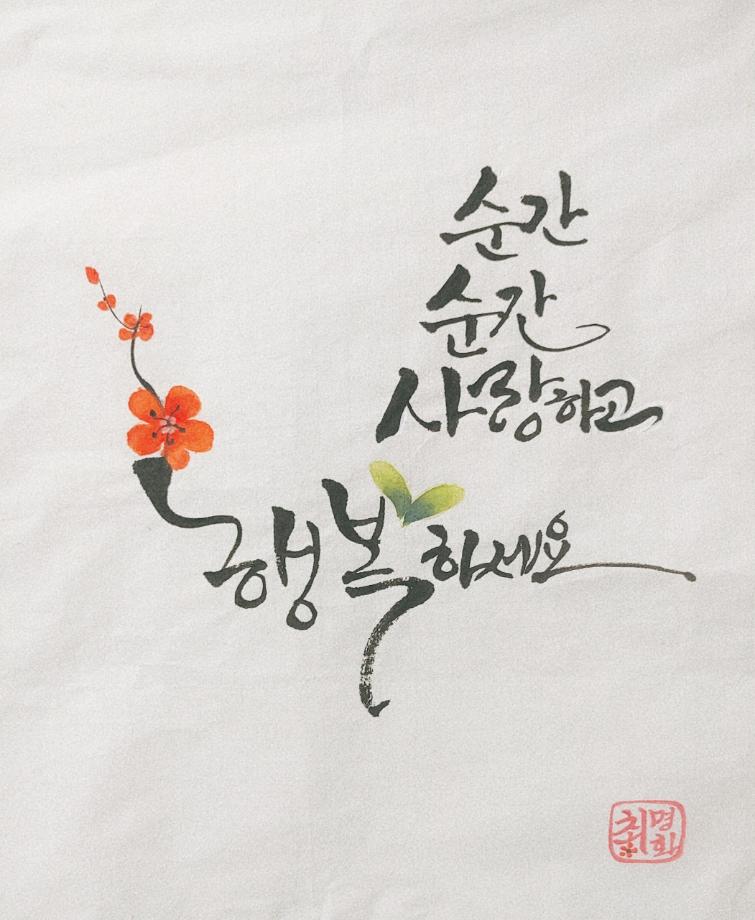 순간
순간
사랑하고
행복하세요
최명화